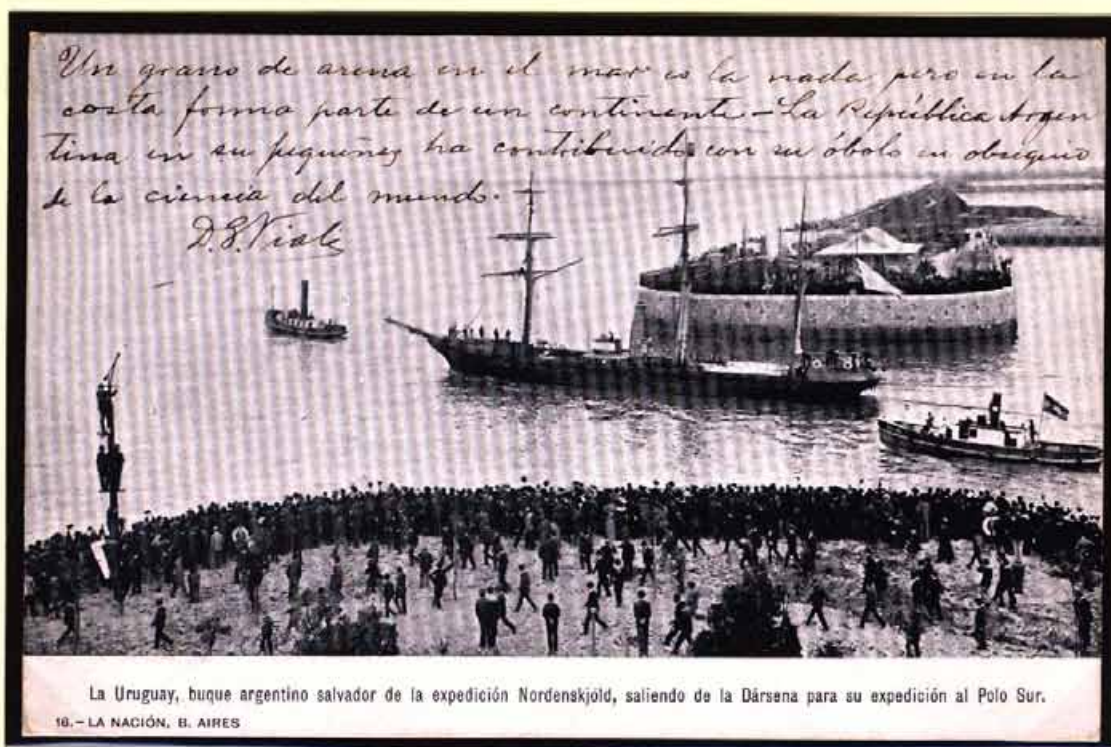 Un grano de arena en el mar es la nada pero en la
costa forma parte de un continente – La República Argen
tina en su pequeñez ha contribuido con su óbolo en obsequio
de la ciencia del mundo.
D. S. Viale
La Uruguay, buque argentino salvador de la expedición Nordenskjold, saliendo de la Dársena para su expedición al Polo Sur.
16.–LA NACIÓN, B. AIRES